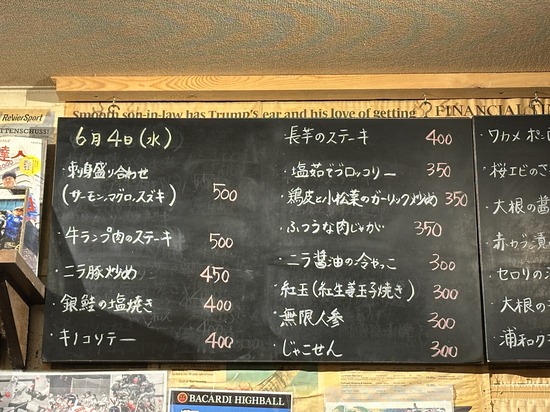 Smooth son-in-law has Trump's ear and his love of getting
FINANCIAL
ReVierSport
TTENSCHUSS!
達人
6月4日(水)
・刺身盛り合わせ
(サーモン、マグロ、スズキ) 500
・牛ランプ肉のステーキ 500
・ニラ豚炒め 450
・銀鮭の塩焼き 400
・キノコソテー 400
長芋のステーキ 400
・塩茹でブロッコリー 350
・鶏皮と小松菜のガーリック炒め 350
・ふつうな肉じゃが 350
・ニラ醤油の冷やっこ 300
・紅玉(紅生姜玉子焼き) 300
・無限人参 300
・じゃこせん 300
・ワカメ ポン
・桜エビのさ
・大根の醤
・赤カブ漬
・セロリの
・大根の
・浦和ク
BACARDI HIGHBALL